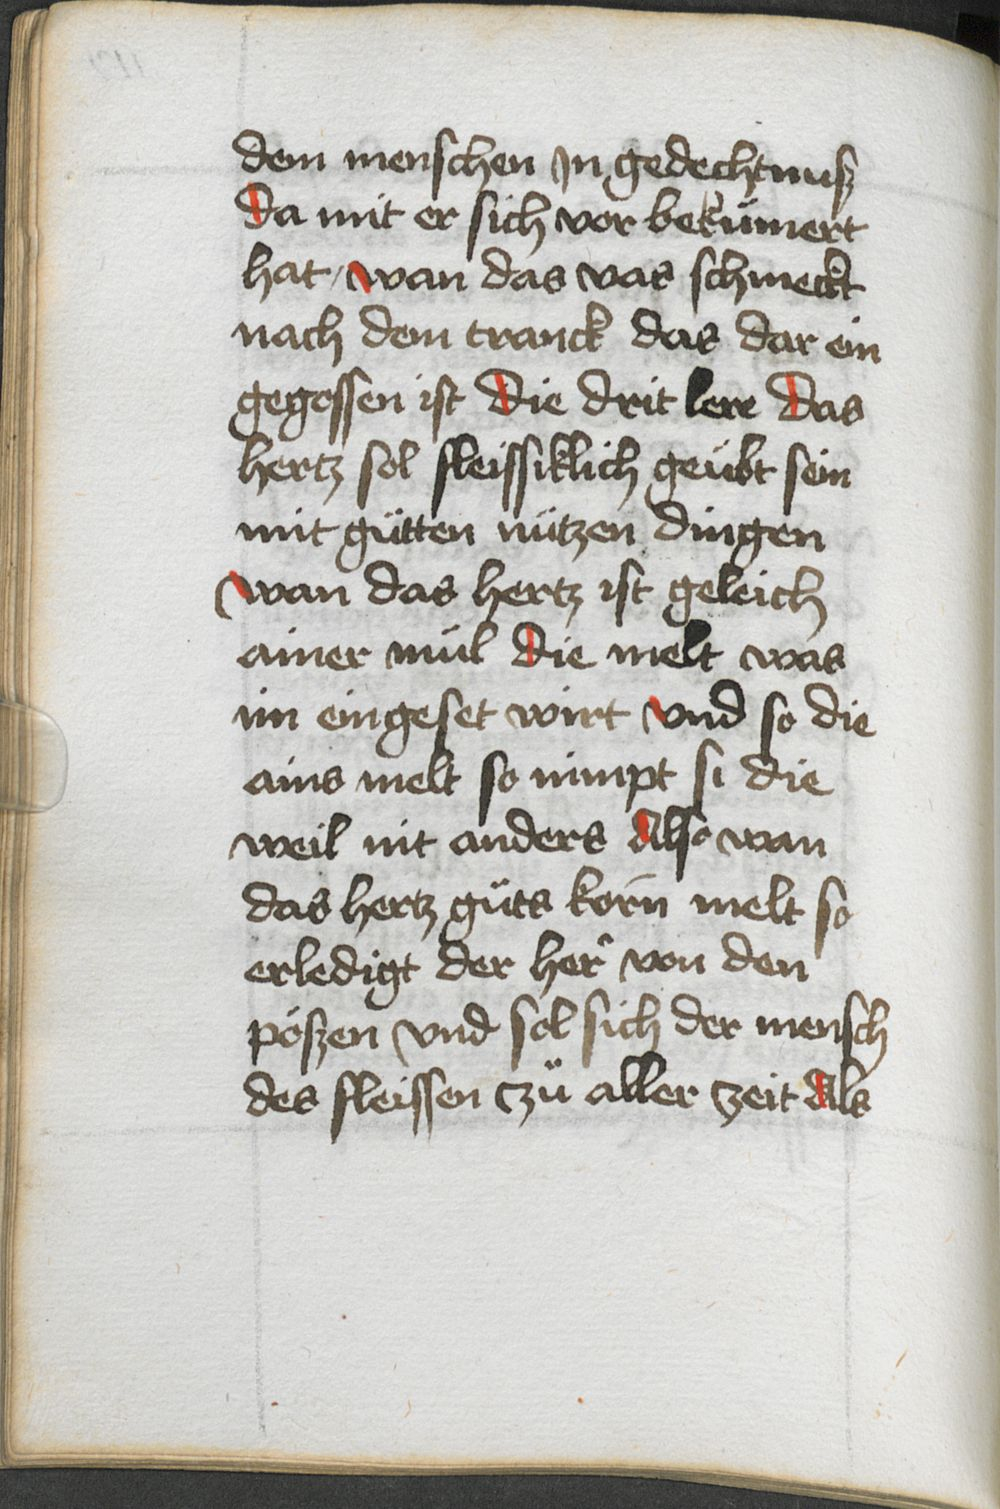 dem menschen Jn gedechtnusz
Da mit er sich vor bekümert
hat / wan das vas schmeckt
nach dem tranck das dar ein
gegossen ist Die drit lere Das
hertz sol fleissiklich geübt sein
mit gütten nützen dingen
wan das hertz ist geleich
ainer mül Die melt was
im eingeset wirt vnd so die
ains melt so nimpt si die
weil nit anders Also wan
das hertz güts korn melt so
erledigt der her von den
pöszen vnd sol sich der mensch
des fleissen zü aller zeit Als